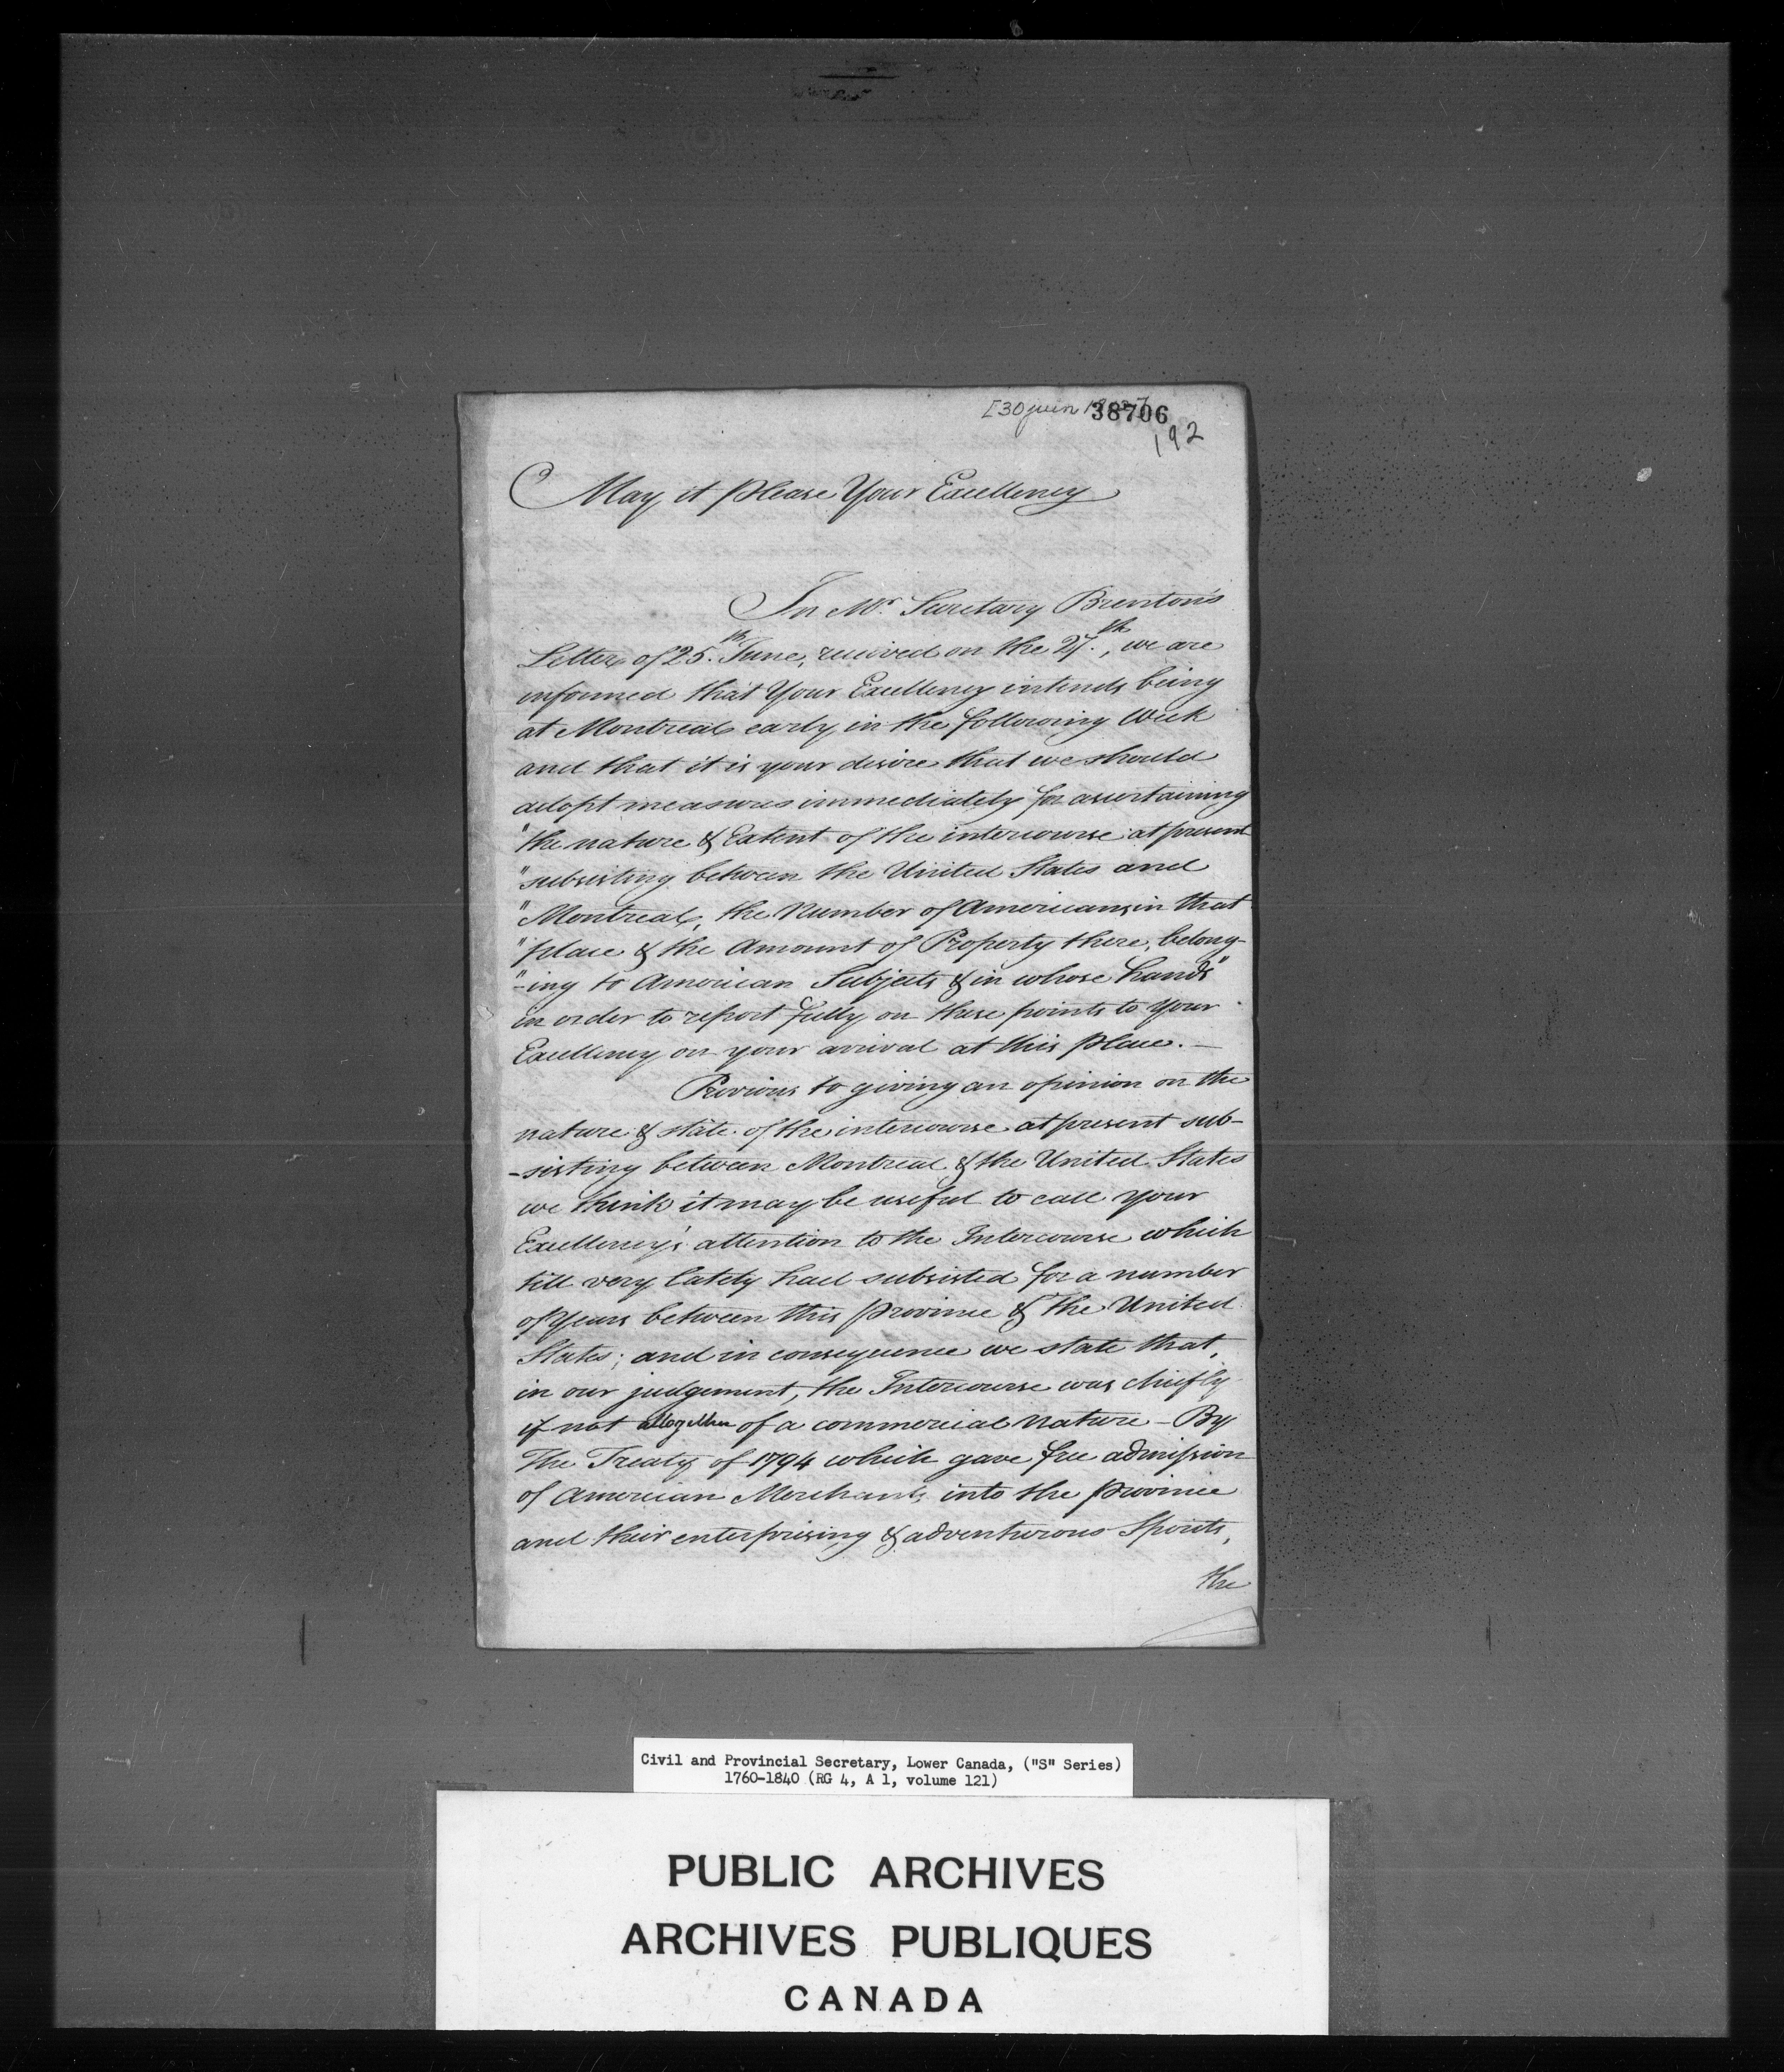 [30 juin
38706
192
May it please Your Excellency
In Mr. Secretary Brenton's
Letter of 25th. June, received on the 27th., we are
informed that Your Excellency intends being
at Montreal early in the following Week
and that it is your desire that we should
adopt measures immediately for ascertaining
"the nature & Extent of the intercourse at present
"subsisting between the United States and
"Montreal, the Number of Americans in that
"place & the Amount of Property there, belong-
"-ing to American Subjects & in whose hands"
in order to report fully on these points to Your
Excellency on your arrival at this place. —
Previous to giving an opinion on the
nature & state of the intercourse at present sub-
-sisting between Montreal & the United States
we think it may be useful to call Your
Excellency's attention to the Intercourse which
till very lately had subsisted for a number
of Years between this province & the United
States; and in consequence we state that,
in our judgement, the Intercourse was chiefly
if not altogether of a commercial nature - By
The Treaty of 1794 which gave free admission
of American Merchants into the province
and their enterprising & adventurous Spirits,
the
Civil and Provincial Secretary, Lower Canada, ("S" Series)
1760-1840 (RG 4, A 1, volume 121)
PUBLIC ARCHIVES
ARCHIVES PUBLIQUES
CANADA